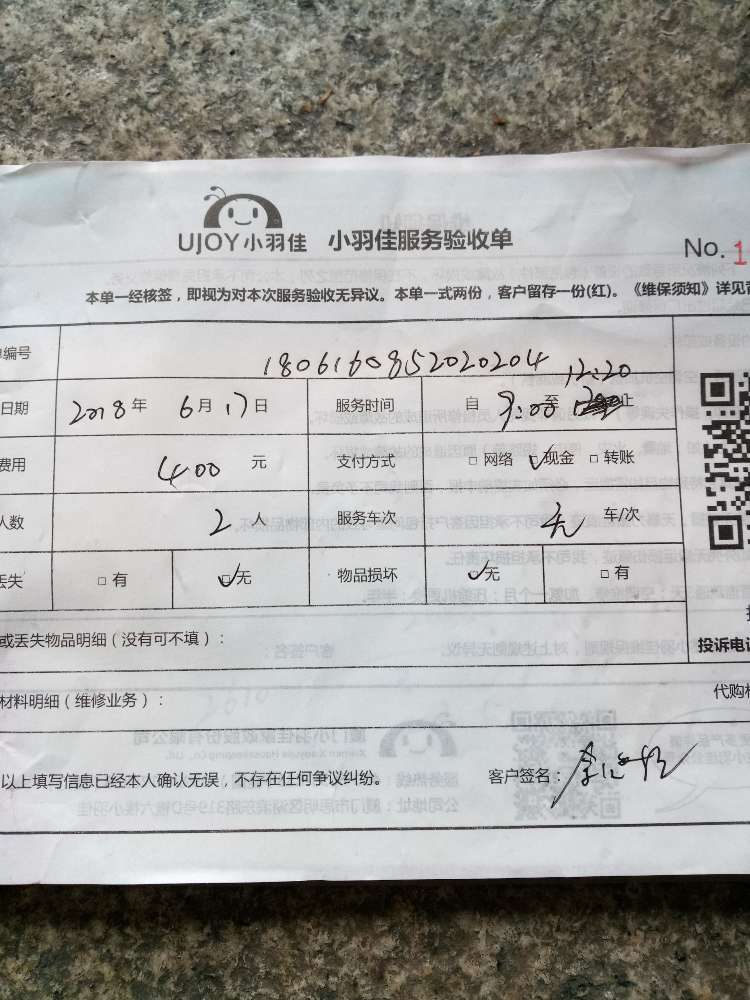 UJOY小羽佳 小羽佳服务验收单
No. 1
本单一经核签，即视为对本次服务验收无异议。本单一式两份，客户留存一份(红)。《维保须知》详见
单编号 1806160852020204
日期 2018年 6月17日 服务时间 自 9:00 至 12:20 止
费用 400 元 支付方式 □ 网络 ✓现金 □ 转账
人数 2 人 服务车次 无 车/次
丢失 □ 有 ✓无 物品损坏 ✓无 □ 有
或丢失物品明细（没有可不填）：
投诉电话
材料明细（维修业务）：
代购
以上填写信息已经本人确认无误，不存在任何争议纠纷。 客户签名：